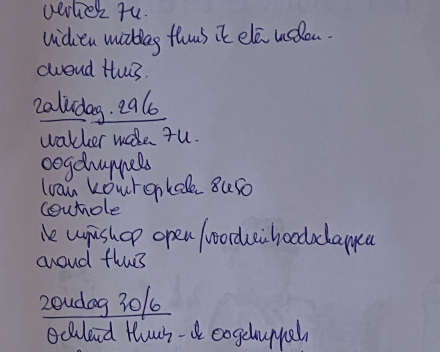 vertrek 7u.
middag thuis ik eten
avond thuis.
zaterdag. 29/6
wakker 7u.
oogdruppels
Ivan komt ophalen 8u50
controle
ik wijnshop open/voordien boodschappen
avond thuis
zondag 30/6
ochtend thuis - ik oogdruppels